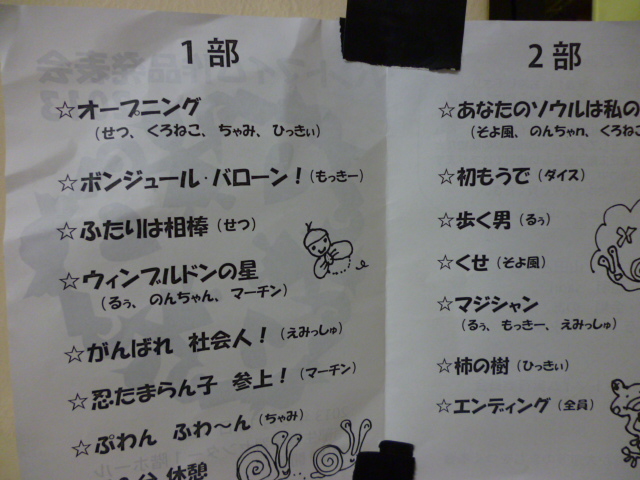 1部
☆オープニング
(せつ、くろねこ、ちゃみ、ひっきぃ)
☆ボンジュール・バローン！(もっきー)
☆ふたりは相棒(せつ)
☆ウィンブルドンの星
(るぅ、のんちゃん、マーチン)
☆がんばれ 社会人！(えみっしゅ)
☆忍たまらん子 参上！(マーチン)
☆ぷわん ふわ〜ん(ちゃみ)
休憩
2部
☆あなたのソウルは私の
(そよ風、のんちゃn、くろねこ
☆初もうで(ダイス)
☆歩く男(るぅ)
☆くせ(そよ風)
☆マジシャン
(るぅ、もっきー、えみっしゅ)
☆柿の樹(ひっきぃ)
☆エンディング(全員)